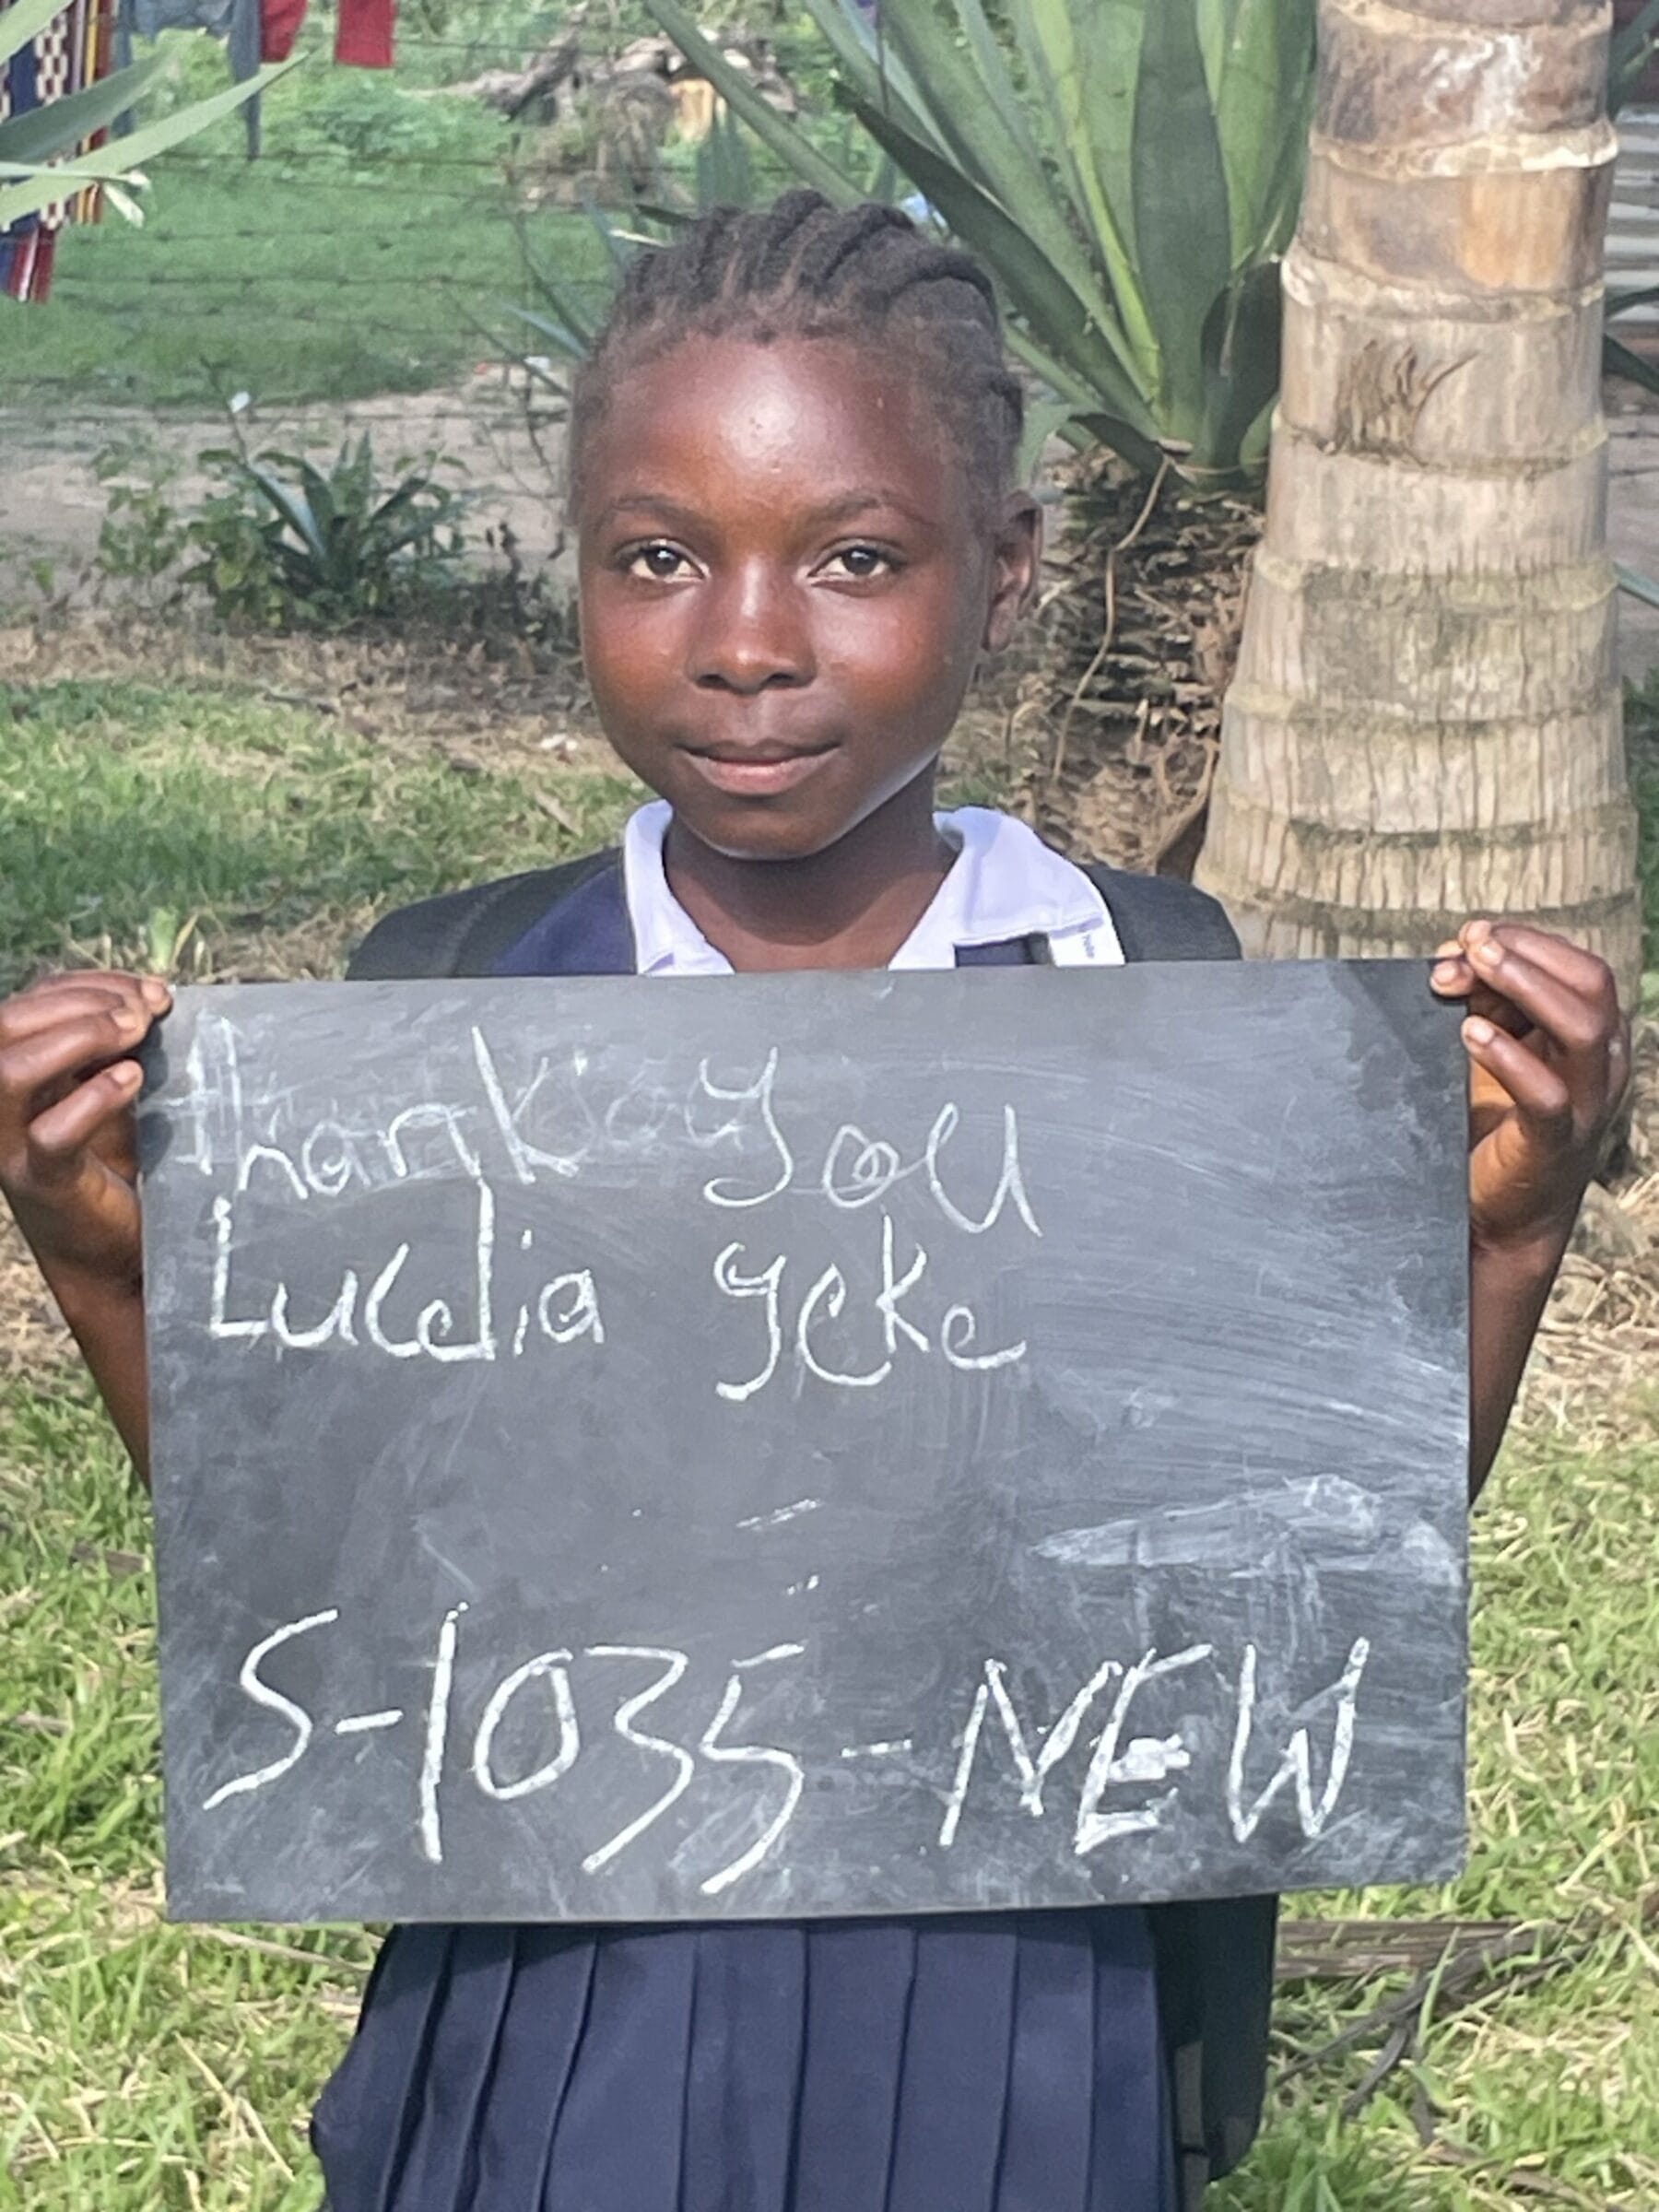 thank you
Lucdia Yeke
S-1035-NEW